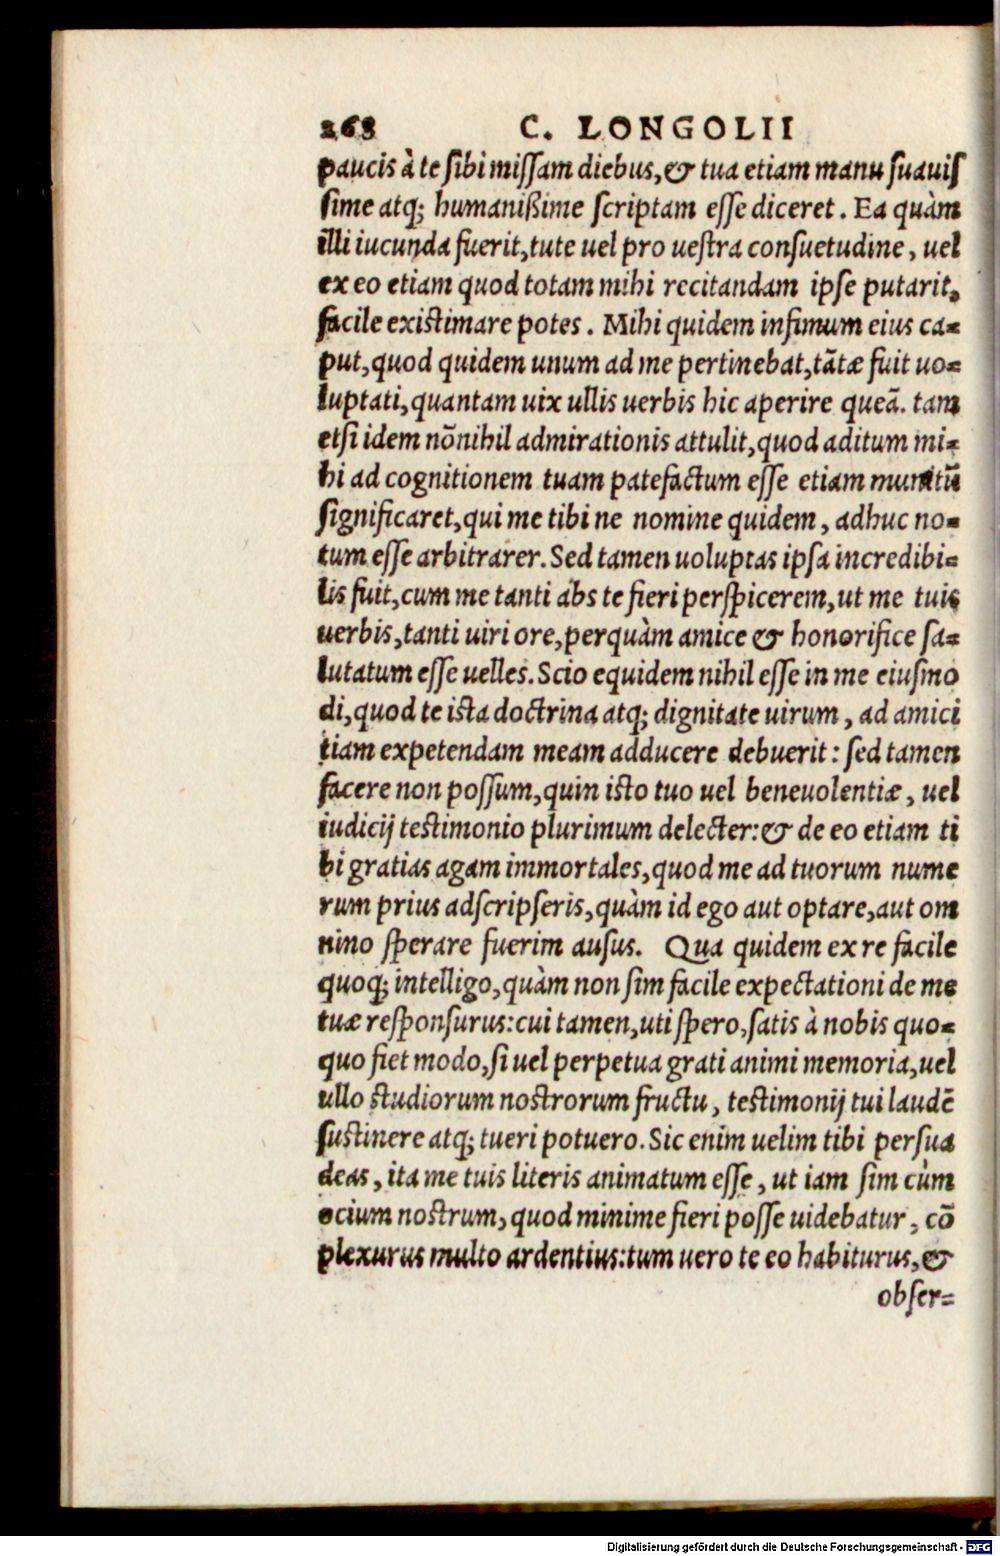 268 C. LONGOLII
paucis à te sibi missam diebus, & tua etiam manu suauis
sime atq; humanißime scriptam esse diceret. Ea quàm
illi iucunda fuerit, tute uel pro uestra consuetudine, uel
ex eo etiam quod totam mihi recitandam ipse putarit,
facile existimare potes. Mihi quidem infimum eius ca=
put, quod quidem unum ad me pertinebat, tãtæ fuit uo=
luptati, quantam uix ullis uerbis hic aperire queã. tam
etsi idem nõnihil admirationis attulit, quod aditum mi=
hi ad cognitionem tuam patefactum esse etiam munitũ
significaret, qui me tibi ne nomine quidem, adhuc no=
tum esse arbitrarer. Sed tamen uoluptas ipsa incredibi=
lis fuit, cum me tanti abs te fieri perspicerem, ut me tuis
uerbis, tanti uiri ore, perquàm amice & honorifice sa=
lutatum esse uelles. Scio equidem nihil esse in me eiusmo
di, quod te ista doctrina atq; dignitate uirum, ad amici
tiam expetendam meam adducere debuerit: sed tamen
facere non possum, quin isto tuo uel beneuolentiæ, uel
iudicij testimonio plurimum delecter: & de eo etiam ti
bi gratias agam immortales, quod me ad tuorum nume
rum prius adscripseris, quàm id ego aut optare, aut om
nino sperare fuerim ausus. Qua quidem ex re facile
quoq; intelligo, quàm non sim facile expectationi de me
tuæ responsurus: cui tamen, uti spero, satis à nobis quo=
quo fiet modo, si uel perpetua grati animi memoria, uel
ullo studiorum nostrorum fructu, testimonij tui laudẽ
sustinere atq; tueri potuero. Sic enim uelim tibi persua
deas, ita me tuis literis animatum esse, ut iam sim cùm
ocium nostrum, quod minime fieri posse uidebatur, cõ
plexurus multo ardentius: tum uero te eo habiturus, &
obser=
Digitalisierung gefördert durch die Deutsche Forschungsgemeinschaft - DFG